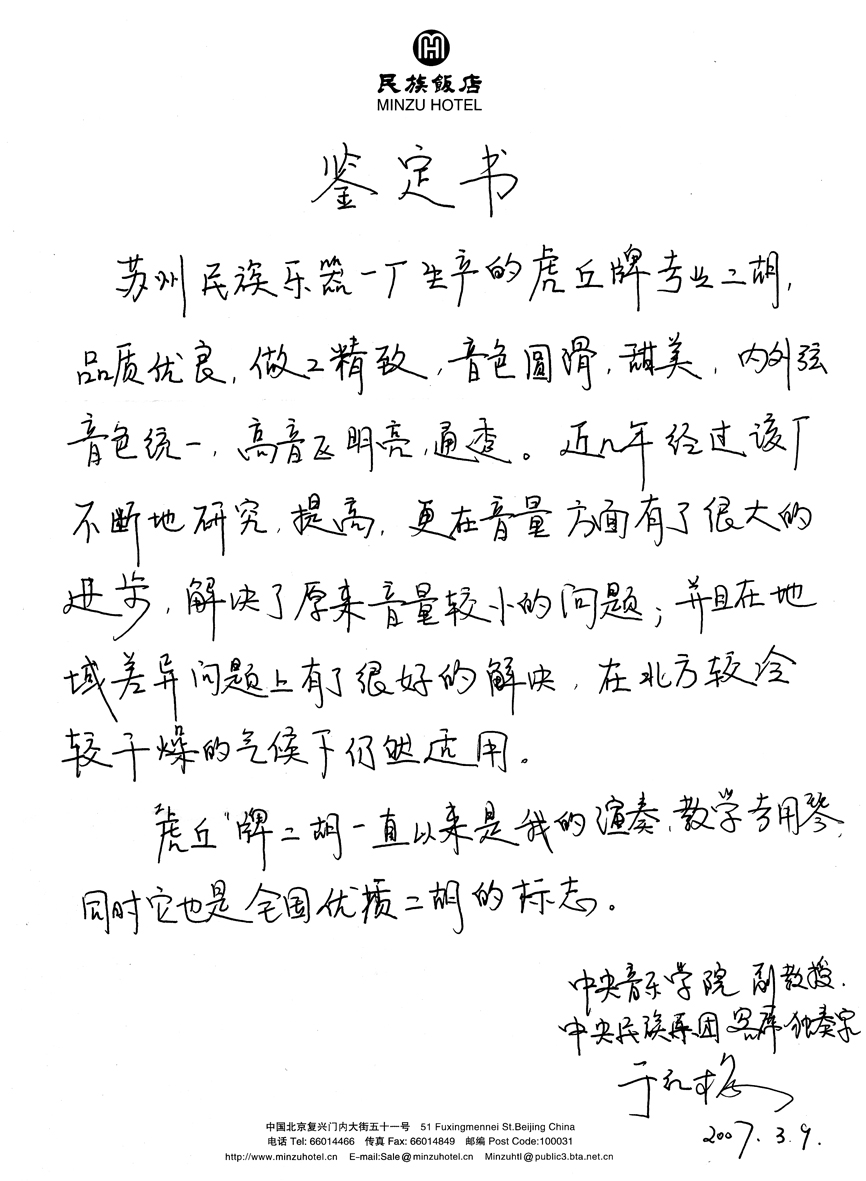 民族飯店
MINZU HOTEL
鉴定书
苏州民族乐器一厂生产的虎丘牌专业二胡,
品质优良,做工精致,音色圆滑,甜美,内外弦
音色统一,高音区明亮,通透。近几年经过该厂
不断地研究,提高,更在音量方面有了很大的
进步,解决了原来音量较小的问题;并且在地
域差异问题上有了很好的解决,在北方较冷
较干燥的气候下仍然适用。
“虎丘”牌二胡一直以来是我的演奏、教学专用琴,
同时它也是全国优质二胡的标志。
中央音乐学院 副教授.
中央民族乐团 客席独奏家
于红梅
2007.3.9.
中国北京复兴门内大街五十一号 51 Fuxingmennei St.Beijing China
电话 Tel: 66014466 传真 Fax: 66014849 邮编 Post Code:100031
http://www.minzuhotel.cn E-mail:Sale@minzuhotel.cn Minzuhtl@public3.bta.net.cn